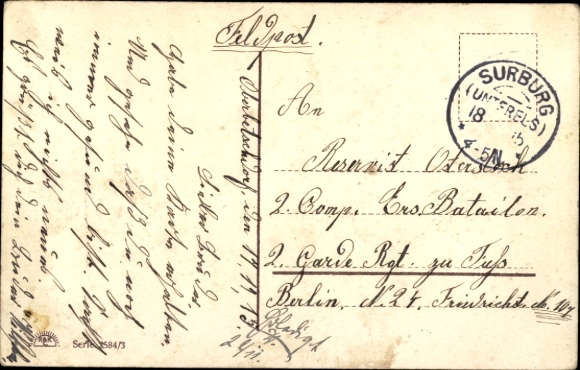 Feldpost.
SURBURG
(UNTERELS)
18
4-5N.
An
Reservist
2. Comp. Ers. Batailon.
2. Garde Rgt. zu Fuss
Berlin. N. 24. Friedrichst. No. 107
Oberbetschdorf den 17.11.15.
Lieber Bruder.
Habe deine Karte erhalten
und gesehen daß du noch
immer gesund bist
was ich auch noch
Es grüßt dich dein Bruder
Erledigt
Serie 2584/3